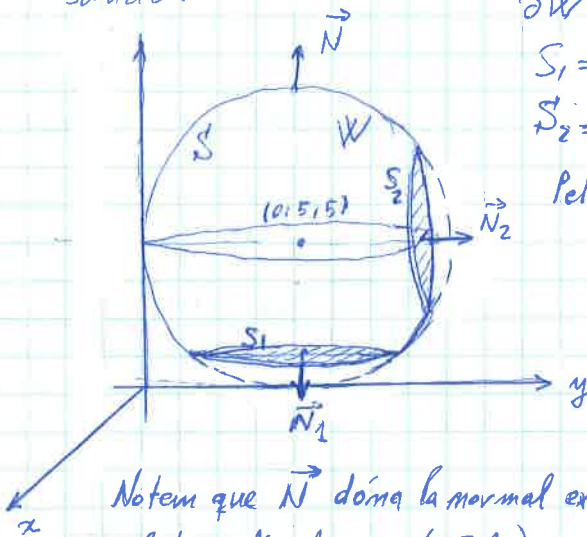 ∂W
S₁ =
S₂ =
Pel
N⃗
S
W
S₂
(0,5,5)
N⃗₂
S₁
N⃗₁
y
x
Notem que N⃗ dóna la normal ex